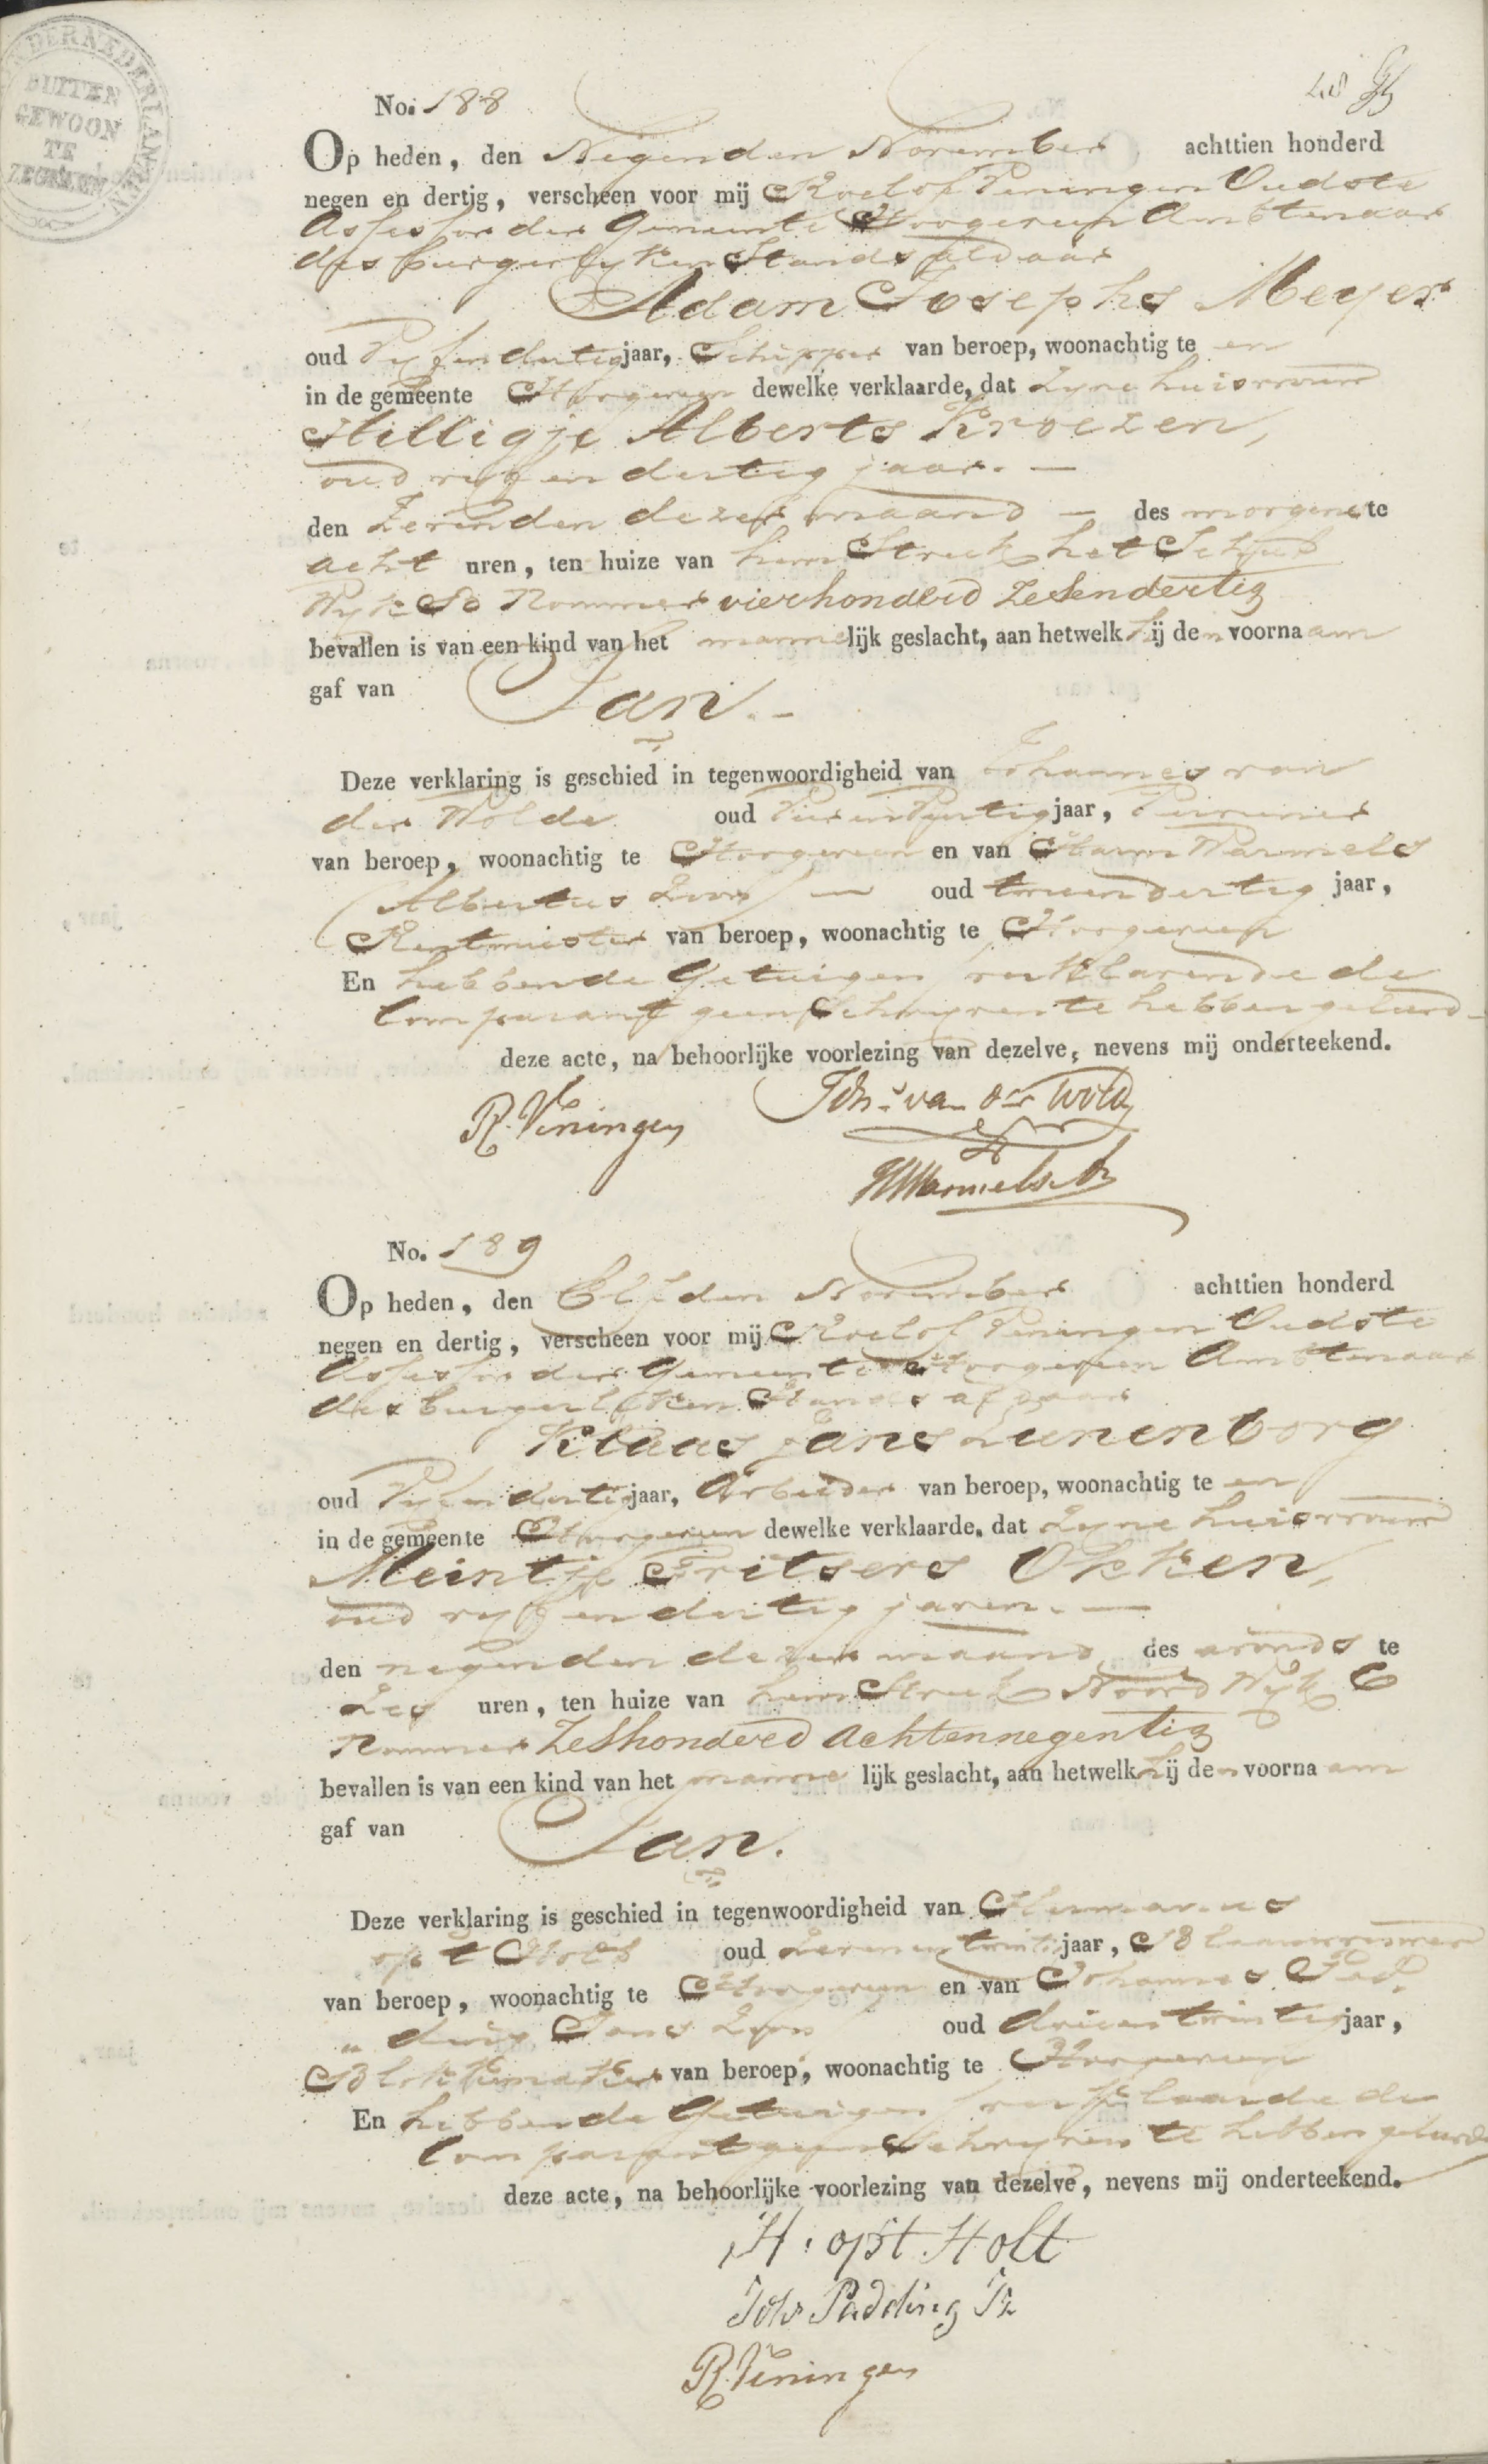 BUITEN
GEWOON
TE
ZEGELEN
48
No. 188
Op heden, den Negenden November achttien honderd
negen en dertig, verscheen voor mij Roelof Veningen Oudste
Assessor der Gemeente Hoogeveen Ambtenaar
des burgerlyken Stands aldaar
Adam Josephs Meyer
oud Vyf en dertig jaar, Schipper van beroep, woonachtig te en
in de gemeente Hoogeveen dewelke verklaarde, dat Zyne huisvrouw
Hilligje Alberts Kroezen,
oud vyf en dertig jaar. —
den Zevenden dezer maand — des morgens te
acht uren, ten huize van hem Streek het Schut
Wyk No Nommer vierhonderd Zesendertig
bevallen is van een kind van het mannelijk geslacht, aan hetwelk hij den voornaam
gaf van Jan. -
Deze verklaring is geschied in tegenwoordigheid van Johannes van
der Wolde oud Vier en Vyftig jaar, Vervener
van beroep, woonachtig te Hoogeveen en van Harm Warmels
(Albertus Zoon) — oud twee en dertig jaar,
Rentmeester van beroep, woonachtig te Hoogeveen
En hebbende Getuigen (verklarende de
Comparant geen Schryven te hebben geleerd
deze acte, na behoorlijke voorlezing van dezelve, nevens mij onderteekend.
R. Veningen Johs van der Wolde
HWarmels Az
No. 189
Op heden, den Elfden November achttien honderd
negen en dertig, verscheen voor mij Roelof Veningen Oudste
Assessor der Gemeente Hoogeveen Ambtenaar
des burgerlyken Stands aldaar
Klaas Jans Lunenborg
oud Vyf en dertig jaar, Arbeider van beroep, woonachtig te en
in de gemeente Hoogeveen dewelke verklaarde, dat Zyne huisvrouw
Meintje Fritsers Okken,
oud vyf en dertig jaren. —
den negenden dezer maand des avonds te
Zes uren, ten huize van hem Streek Noord Wyk C
Nommer Zeshonderd Achtennegentig
bevallen is van een kind van het mannelijk geslacht, aan hetwelk hij den voornaam
gaf van Jan.
Deze verklaring is geschied in tegenwoordigheid van Hermannus
op t Holt oud Zeven en twintig jaar, Blaauwverwer
van beroep, woonachtig te Hoogeveen en van Johannes Pad-
" ding Jans Zoon oud drie en twintig jaar,
Blokkemaker van beroep, woonachtig te Hoogeveen
En hebbende Getuigen (verklaarde de
Comparant geen Schryven te hebben geleerd
deze acte, na behoorlijke voorlezing van dezelve, nevens mij onderteekend.
H. op't Holt
Johs Padding Jz
R. Veningen